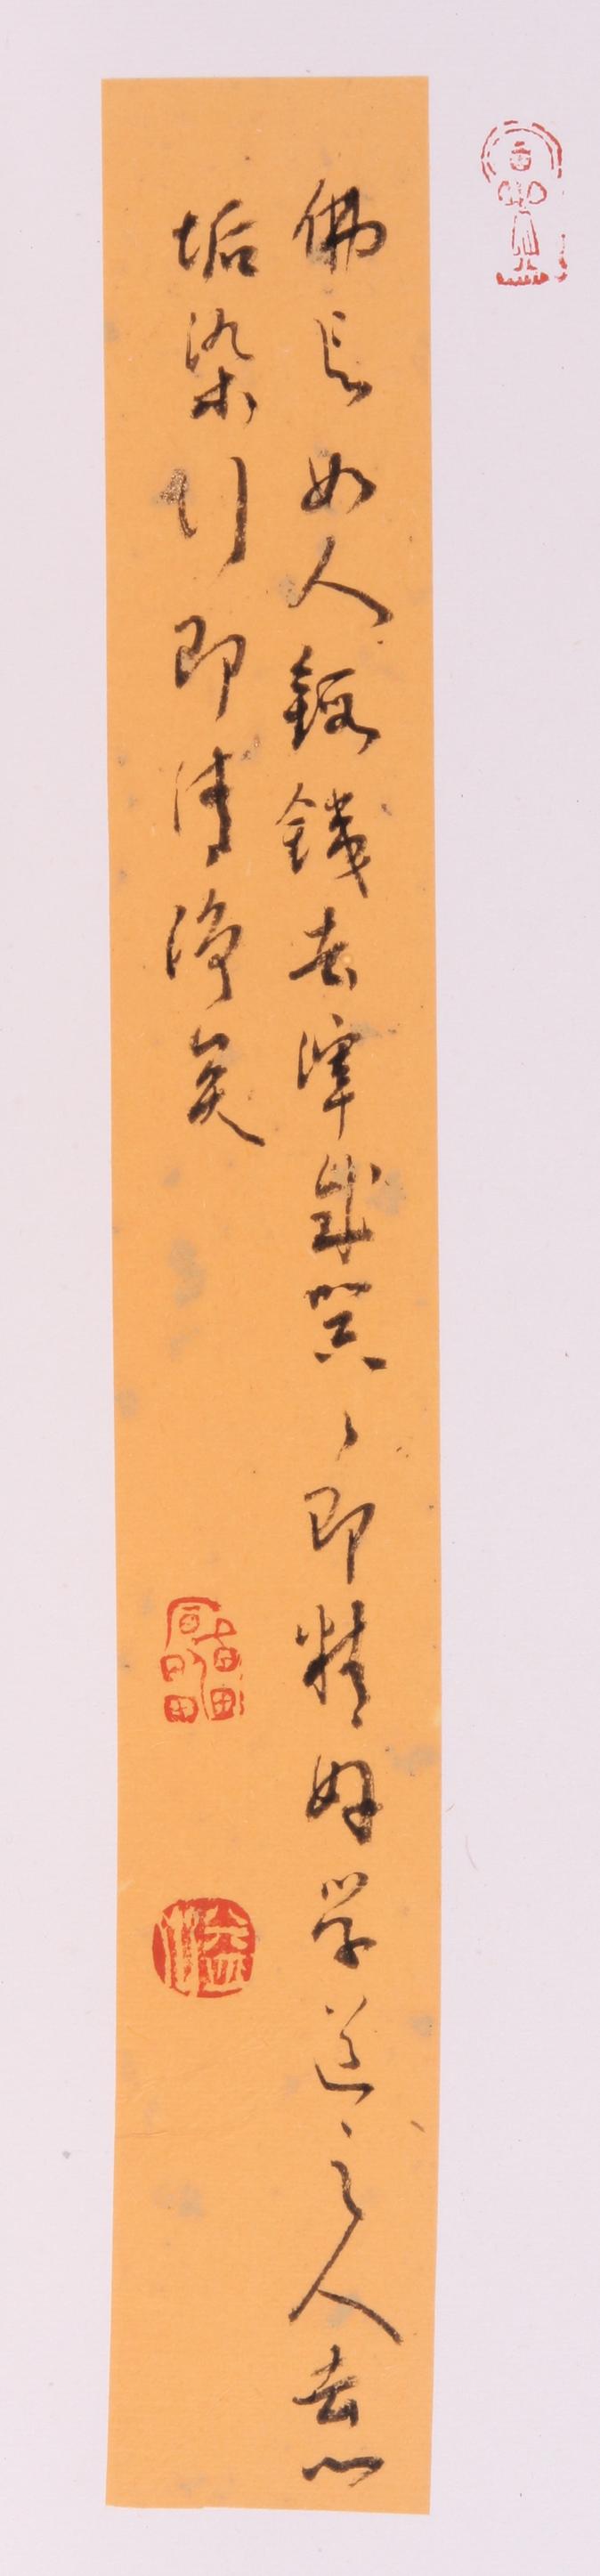 佛言如人鍛鐵去滓成器々即精好学道之人去心
垢染行即清淨矣